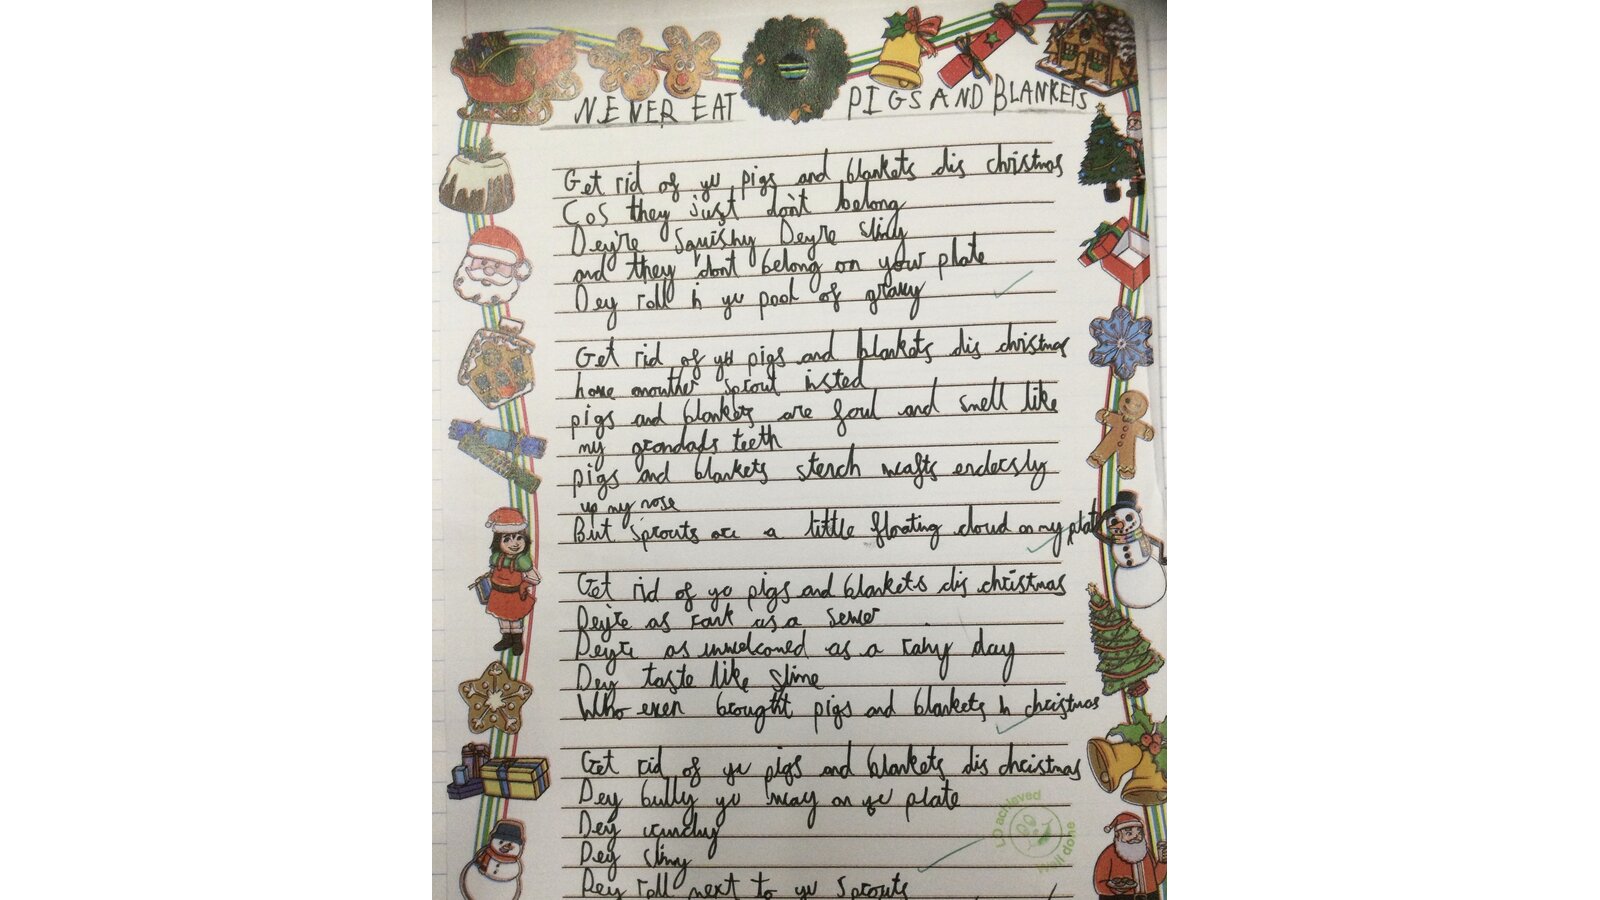 NEVER EAT PIGS AND BLANKETS
Get rid of yu pigs and blankets dis christmas
Cos they just don't belong
Dey're Squishy Deyre slimy
and they dont belong on your plate
Dey roll in yu pool of gravy
Get rid of yu pigs and blankets dis christmas
have anouther sprout insted
pigs and blankets are foul and smell like
my grandads teeth
pigs and blankets stench wafts endersly
up my nose
But sprouts are a little floating cloud on my plate
Get rid of yo pigs and blankets dis christmas
Deyre as rank as a sewer
Deyre as unwelcomed as a rainy day
Dey taste like slime
Who even brought pigs and blankets in christmas
Get rid of yu pigs and blankets dis christmas
Dey bully yu way on yu plate
Dey crunchy
Dey slimy
Dey roll next to yu sprouts
LO achieved
Well done